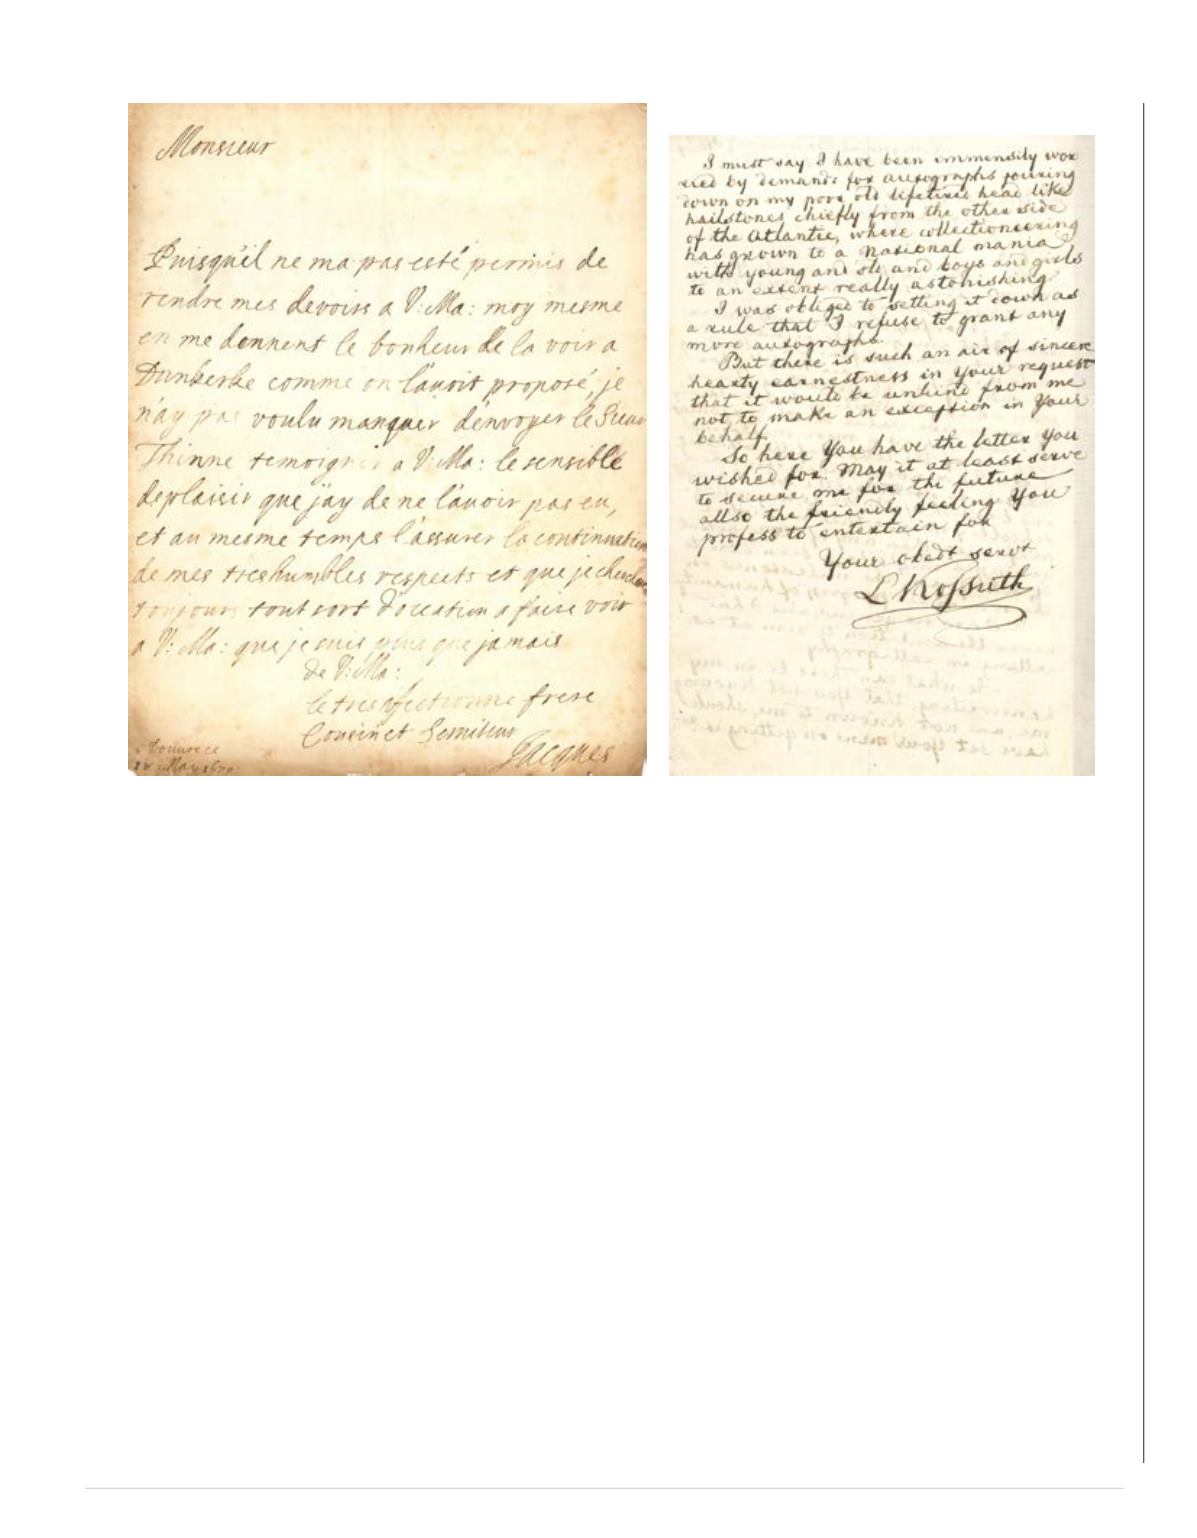 Monsieur
Puisqu'il ne ma pas esté permis de
rendre mes devoirs a V: Ma: moy mesme
en me donnent le bonheur de la voir a
Dunkerke comme on l'auoit proposé, je
n'ay pas voulu manquer d'envoyer le Sieur
Thinne temoigner a V: Ma: le sensible
deplaisir que j'ay de ne l'auoir pas eu,
et au mesme temps l'assurer la continuation
de mes tres humbles respects et que je
toujours tout sort d'occation a faire voir
a V: Ma: que je suis plus que jamais
de V: Ma:
le tres frere
Cousin et Serviteur
Jacques
Douure ce
May
I must say I have been immensily wor
ried by demands for autographs pouring
down on my poor old lifetired head like
hailstones chiefly from the other side
of the Atlantic, where collectioneering
has grown to a National mania
with young and old and boys and girls
to an extent really astonishing
I was obliged to setting it down as
a rule that I refuse to grant any
more autographs.
But there is such an air of sincere
hearty earnestness in your request
that it would be unkind from me
not to make an exception in Your
behalf
So here You have the letter You
wished for. May it at least serve
to secure me for the future
allso the friendly feeling You
profess to entertain for
Your obedt servt
L Kossuth